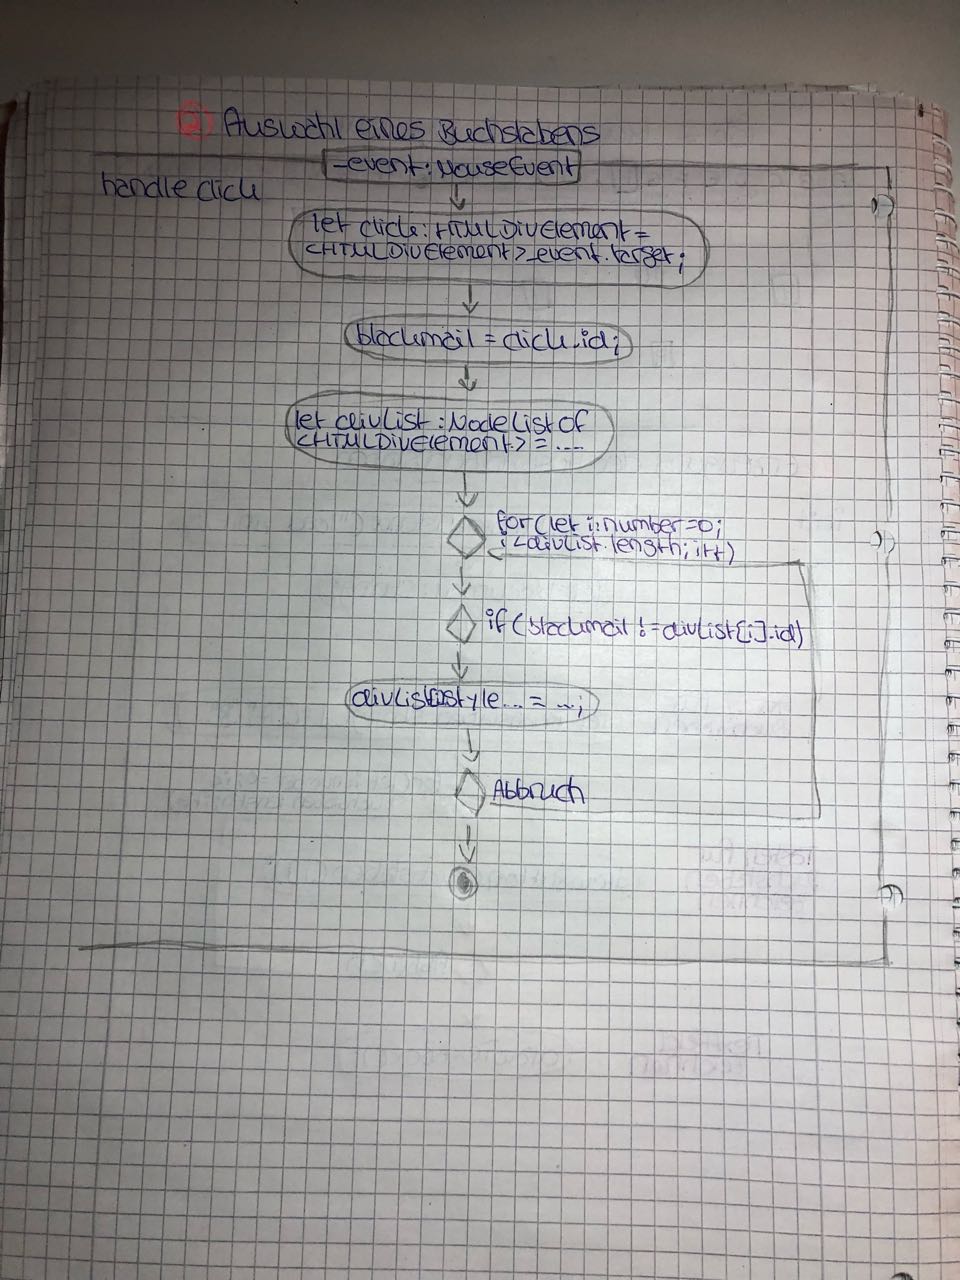 2) Auswahl eines Buchstabens
_event: MouseEvent
handle click
let click: HTMLDivElement =
<HTMLDivElement>_event.target;
blackmail = click.id;
let divList: NodeListOf
<HTMLDivElement> = ....
for(let i: number=0;
i<divList.length; i++)
if (blackmail != divList[i].id)
divList[i].style... = ...;
Abbruch